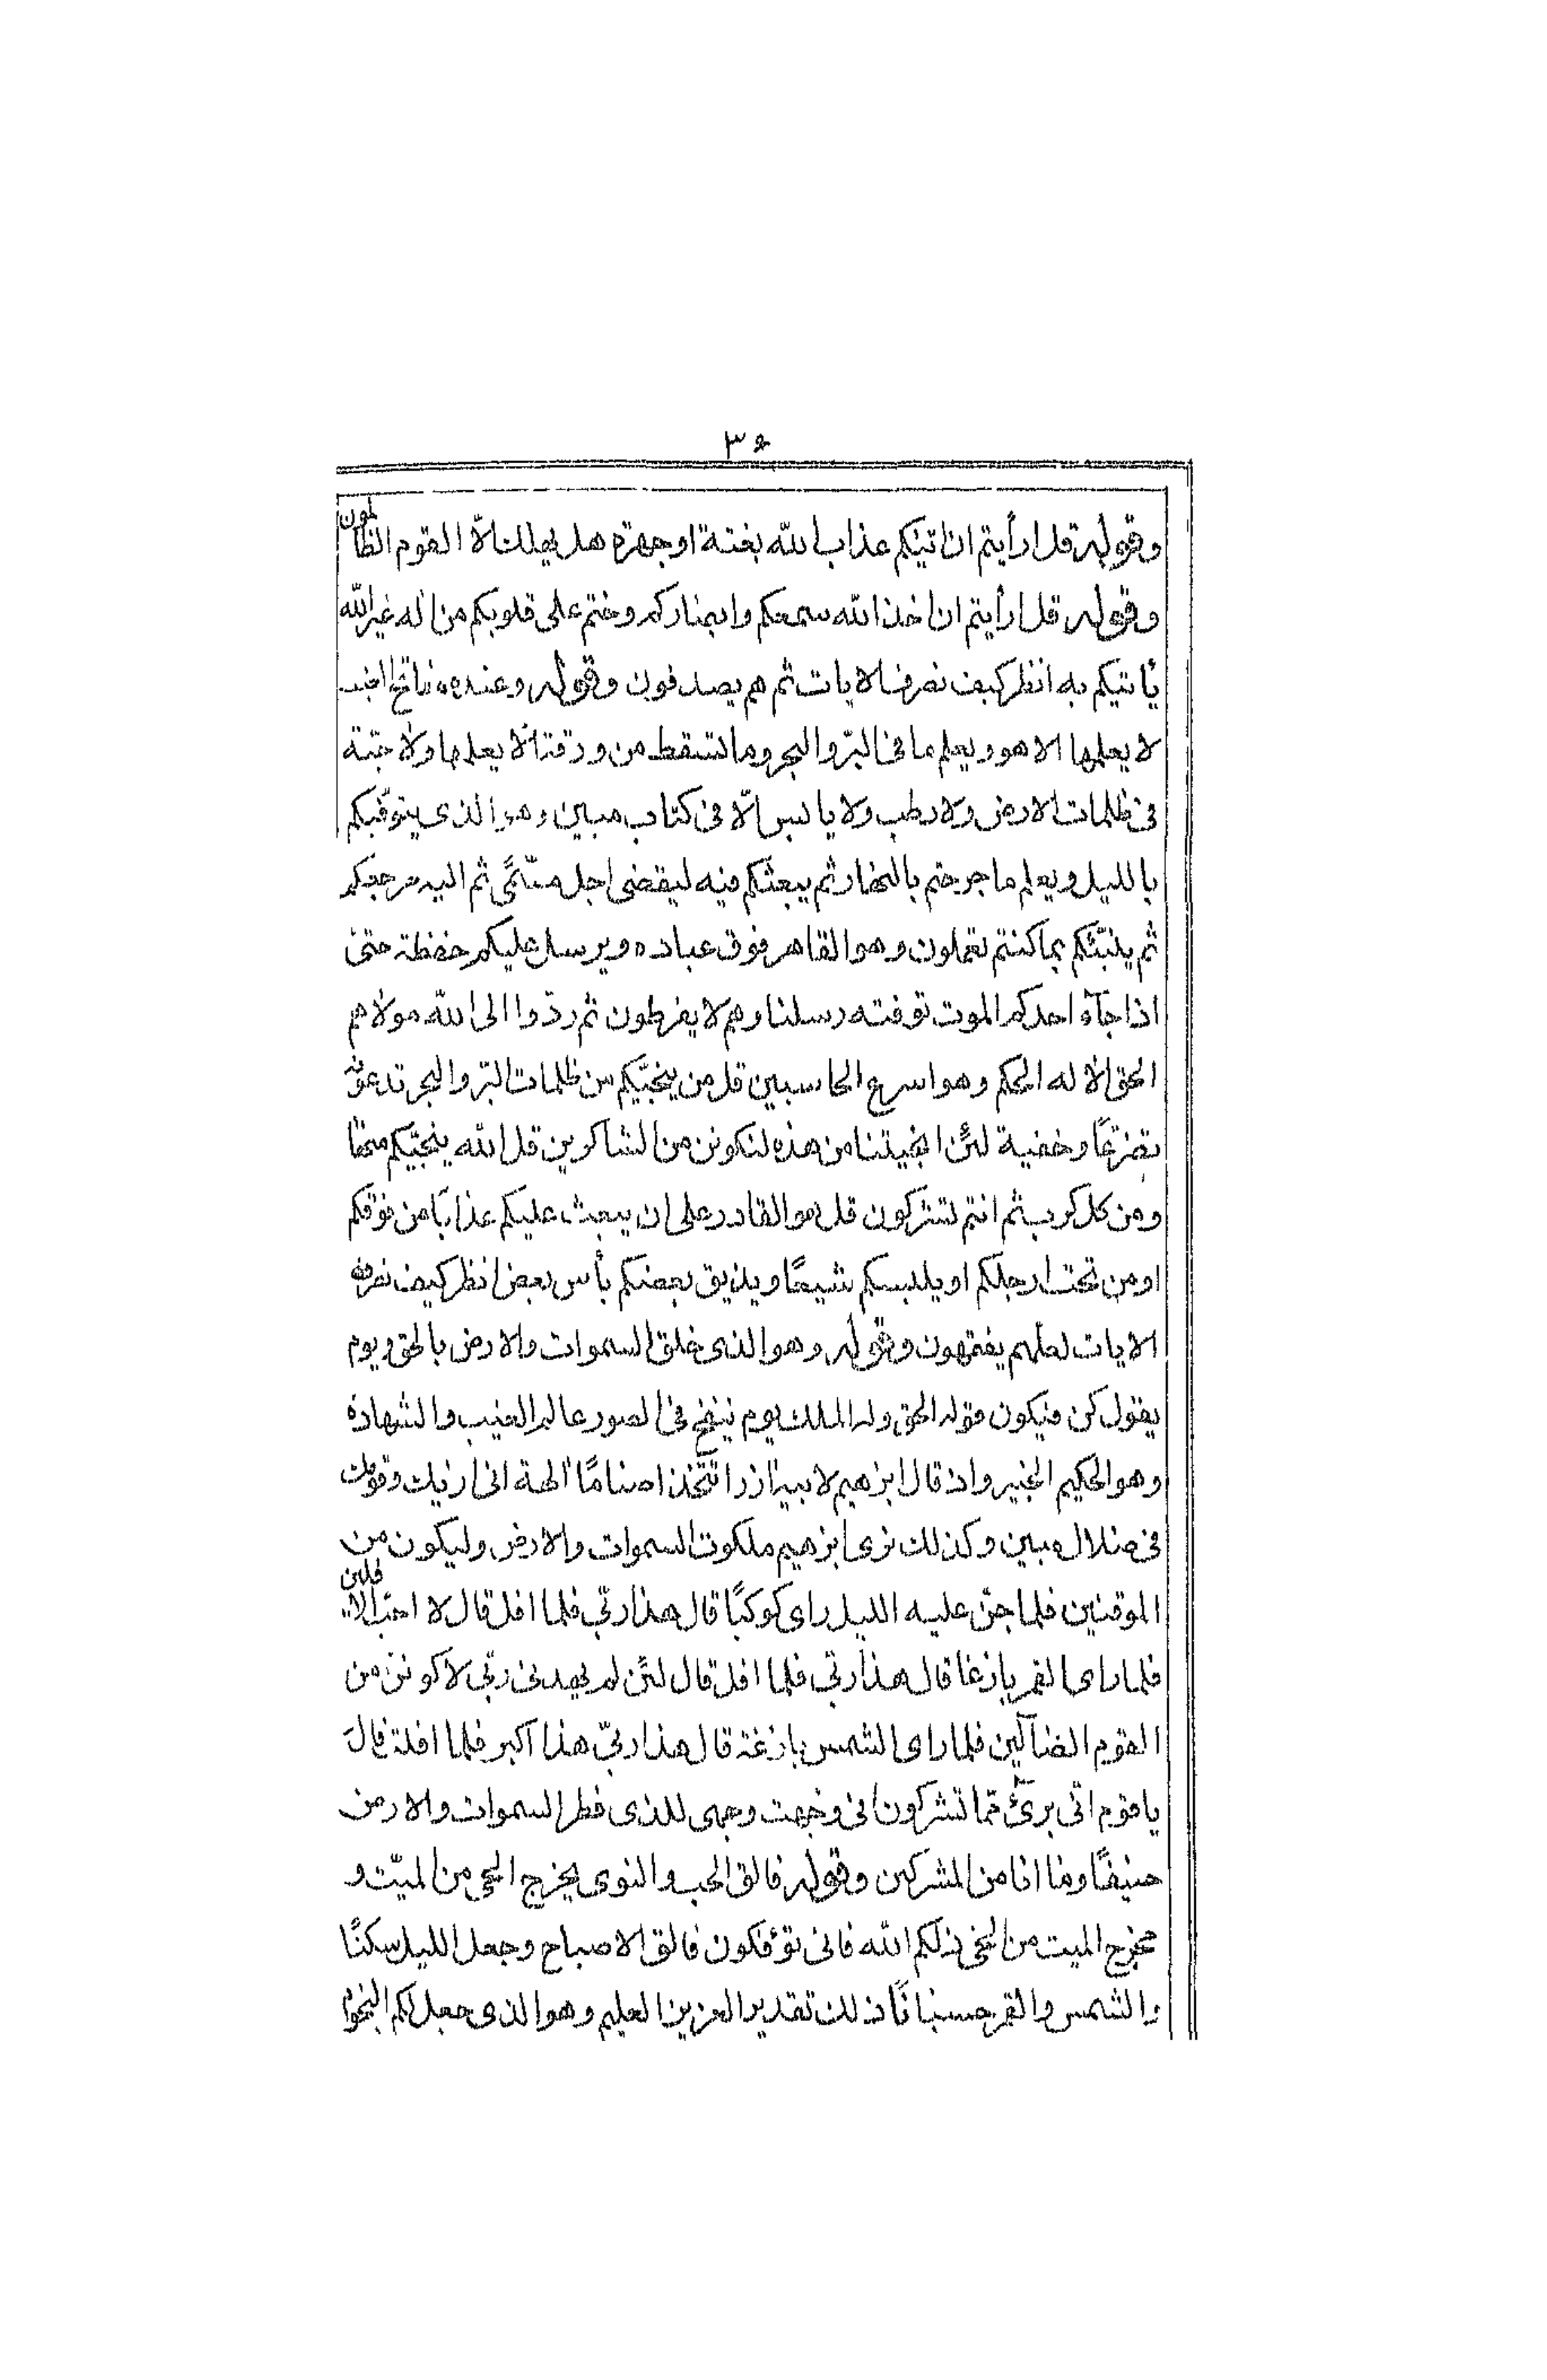 ٣٤
وقوله قل ارأيتم ان اتيٰكم عذاب الله بغتة او جهرة هل يهلك الاّ القوم الظالمون
وقوله قل ارأيتم ان اخذ الله سمعكم وابصاركم وختم على قلوبكم من اله غير الله
يأتيكم به انظر كيف نصرف الايات ثم هم يصدفون وقوله وعنده مفاتح الغيب
لا يعلمها الا هو ويعلم ما فى البرّ والبحر وما تسقط من ورقة الا يعلمها ولا حبّة
فى ظلمات الارض ولا رطب ولا يابس الّا فى كتاب مبين وهو الذى يتوفّيكم
بالليل ويعلم ما جرحتم بالنهار ثم يبعثكم فيه ليقضى اجل مسمًّى ثم اليه مرجعكم
ثم ينبّئكم بما كنتم تعملون وهو القاهر فوق عباده ويرسل عليكم حفظة حتى
اذا جآء احدكم الموت توفته رسلنا وهم لا يفرطون ثم ردّوا الى الله مولاهم
الحق الا له الحكم وهو اسرع الحاسبين قل من ينجّيكم من ظلمات البرّ والبحر تدعونه
تضرعًا وخفية لئن انجيتنا من هذه لنكونن من الشاكرين قل الله ينجّيكم منها
ومن كل كرب ثم انتم تشركون قل هو القادر على ان يبعث عليكم عذابًا من فوقكم
او من تحت ارجلكم او يلبسكم شيعًا ويذيق بعضكم بأس بعض انظر كيف نصرف
الايات لعلّهم يفقهون وقوله وهو الذى خلق السموات والارض بالحق ويوم
يقول كن فيكون قوله الحق وله الملك يوم ينفخ فى الصور عالم الغيب والشهادة
وهو الحكيم الخبير واذ قال ابرٰهيم لابيه ازر اتتّخذ اصنامًا الهة انى اريك وقومك
فى ضلال مبين وكذلك نرى ابرٰهيم ملكوت السموات والارض وليكون من
الموقنين فلما جنّ عليه الليل راى كوكبًا قال هذا ربّى فلما افل قال لا احبّ الافلين
فلما راى القمر بازغا قال هذا ربّى فلما افل قال لئن لم يهدنى ربّى لاكوننّ من
القوم الضآلّين فلما راى الشمس بازغة قال هذا ربّى هذا اكبر فلما افلت قالَ
يا قوم انّى برئ ممّا تشركون انى وجهت وجهى للذى فطر السموات والارض
حنيفًا وما انا من المشركين وقوله فالق الحب والنوى يخرج الحى من الميّت و
مخرج الميت من الحى ذلكم الله فانى تؤفكون فالق الاصباح وجعل الليل سكنًا
والشمس والقمر حسبانًا ذلك تقدير العزيز العليم وهو الذى جعل لكم النجوم